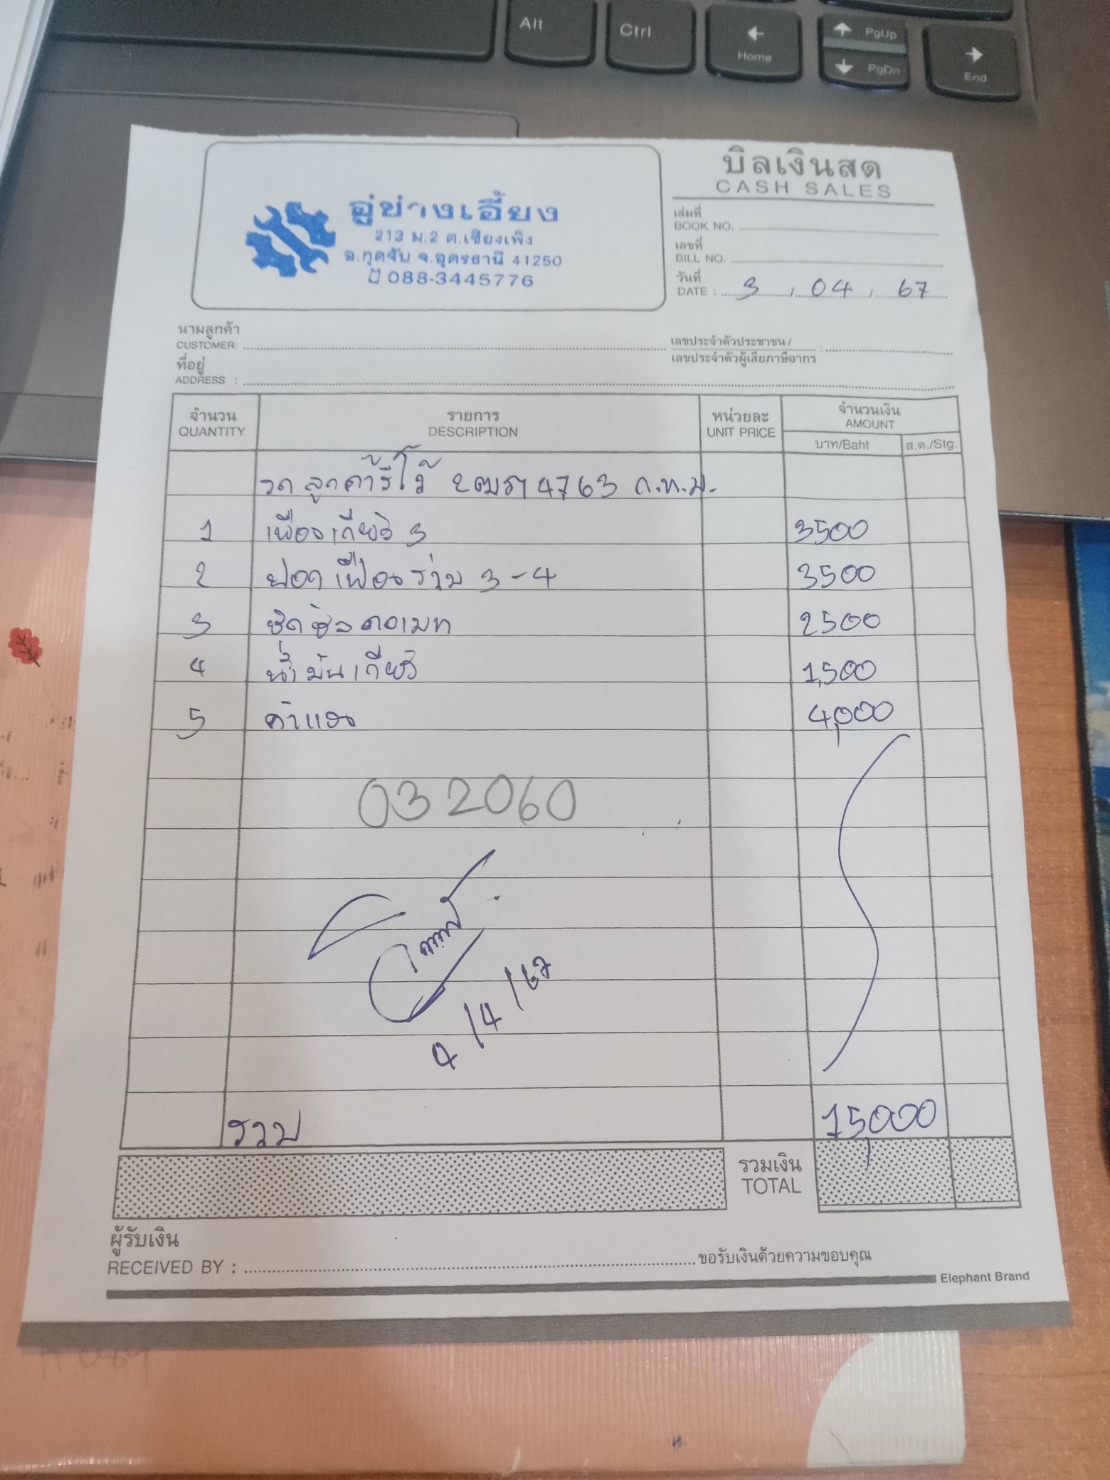 Alt
Ctrl
Home
PgUp
PgDn
End
บิลเงินสด
CASH SALES
อู่ช่างเอี้ยง
213 ม.2 ต.เชียงเพ็ง
อ.กุดจับ จ.อุดรธานี 41250
088-3445776
เล่มที่
BOOK NO.
เลขที่
BILL NO.
วันที่
DATE : 3 , 04 , 67
นามลูกค้า
CUSTOMER:
เลขประจำตัวประชาชน/
เลขประจำตัวผู้เสียภาษีอากร :
ที่อยู่
ADDRESS :
จำนวน
QUANTITY
รายการ
DESCRIPTION
หน่วยละ
UNIT PRICE
จำนวนเงิน
AMOUNT
บาท/Baht
ส.ต./Stg.
รถ ลูกค้ารีโว้ 4763 ก.ท.ม.
1 เฟืองเกียร์ 3 3500
2 ปลอก เฟืองร่วม 3-4 3500
3 ชุดซีล 2500
4 น้ำมันเกียร์ 1,500
5 ค่าแรง 4,000
032060
4/4/67
รวม 15,000
รวมเงิน
TOTAL
ผู้รับเงิน
RECEIVED BY :
ขอรับเงินด้วยความขอบคุณ
Elephant Brand